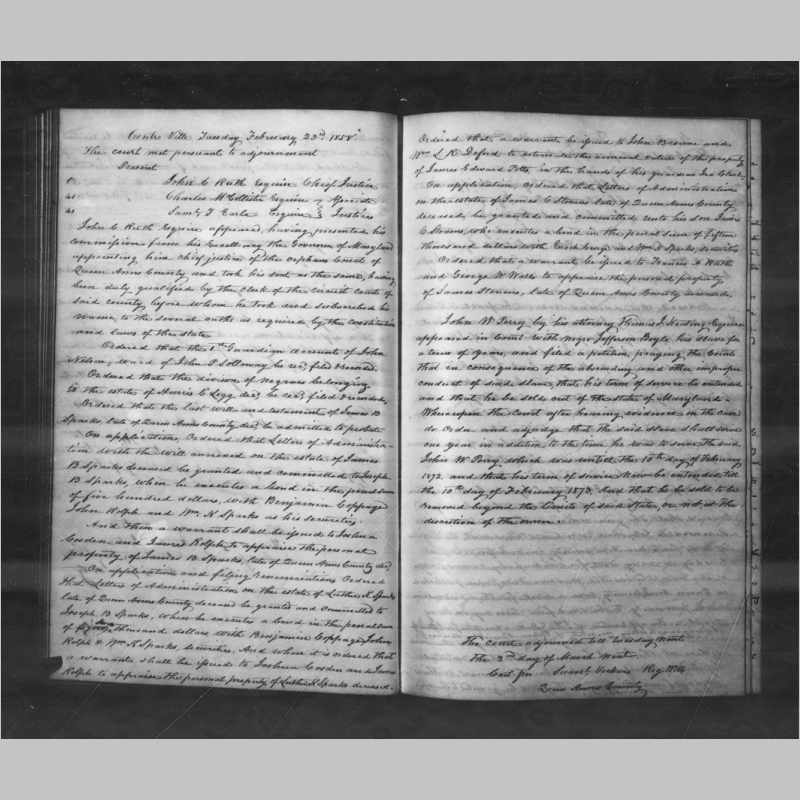 Centre Ville Tuesday February 23rd 1858
The court met pursuant to adjournment
Present
John C Ruth Esquire Chief Justice
Charles W Esquire & Associate
Saml T Earle Esquire Justices
John C Ruth Esquire appeared, having presented his
commission from his Excellency the Governor of Maryland
appointing him chief justice of the orphans Court of
Queen Anns County and took his seat as the same, having
been duly qualified by the clerk of the circuit court of
said county, before whom he took and subscribed his
name, to the several oaths as required by the constitution
and laws of the state
Ordered that the Guardian account of John
Nelson, ward of John S Solloway be recd, filed & recorded
Ordered that the division of negroes belonging
to the estate of Harris C Legg decd, be recd, filed & recorded,
Ordered that the last will and testament of James B
Sparks late of Queen Anns County decd, be admitted to probate
On application, Ordered that Letters of Administra-
tion with the will annexed on the estate of James
B Sparks deceased be granted and committed to Joseph
B Sparks, when he executes a bond in the penal sum
of five hundred dollars, with Benjamin Coppage
John Rolph and Wm N Sparks as his securities
And Then a warrant shall be issued to Joshua
Cosden and James Rolph to appraise the personal
property of James B Sparks, late of Queen Anns County decd
On application and filing renunciations Ordered
that Letters of Administration on the estate of Luther K Sparks
late of Queen Anns County deceased be granted and committed to
Joseph B Sparks, when he executes a bond in the penal sum
of thousand dollars with Benjamin Coppage, John
Rolph & Wm N Sparks, securities. And when it is ordered that
a warrant shall be issued to Joshua Cosden and James
Rolph to appraise the personal property of Luther K Sparks deceased.
Ordered that a warrant be issued to John Browne and
Wm L K Deford to return the annual value of the property
of James Edward Potts, in the hands of his guardian
On application, Ordered that Letters of Administration
on the estate of James C Stevens late of Queen Anns County
deceased, be granted and committed unto his son James
C Stevens, who executes a bond in the penal sum of fifteen
thousand dollars with and Wm J Sparks, securities
Ordered that a warrant be issued to Francis A Ruth
and George W Walls to appraise the personal property
of James Stevens, late of Queen Anns County deceased.
John W Perry by his attorney Thomas J Keating Esquire
appeared in Court with negro Jefferson Boyle his slave for
a term of years, and filed a petition praying the Court
that in consequence of the absconding and other improper
conduct of said slave, that his term of service be extended
and that he be sold out of the state of Maryland.
Whereupon the court after hearing evidence in the case
do Order and adjudge that the said slave shall serve
one year in addition to the time he was to serve the said
John W Perry, which was until the 10th day of February
1872, and that his term of service be extended till
the 10th day of February 1873, And that he be sold to be
removed beyond the limits of said State, or not at the
discretion of the owner.
The court adjourned till Tuesday next
the 2nd day of March next
Test for Reg Wills
Queen Anns County